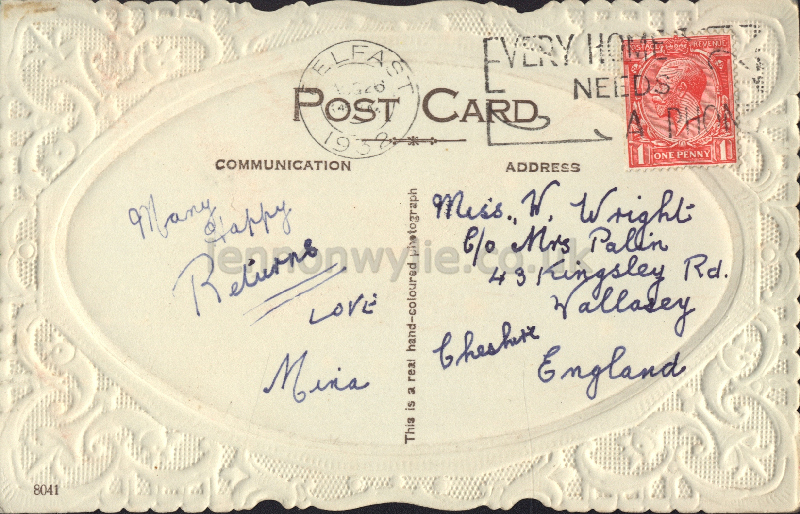 BELFAST
26
1932
EVERY HOME
NEEDS
A PHON
POSTAGE REVENUE
1 ONE PENNY 1
POST CARD
COMMUNICATION
ADDRESS
Many
Happy
Returns
LOVE
Mina
This is a real hand-coloured photograph
Miss. W. Wright
C/o Mrs Palin
43 Kingsley Rd.
Wallasey
Cheshire
England
lennonwylie.co.uk
8041